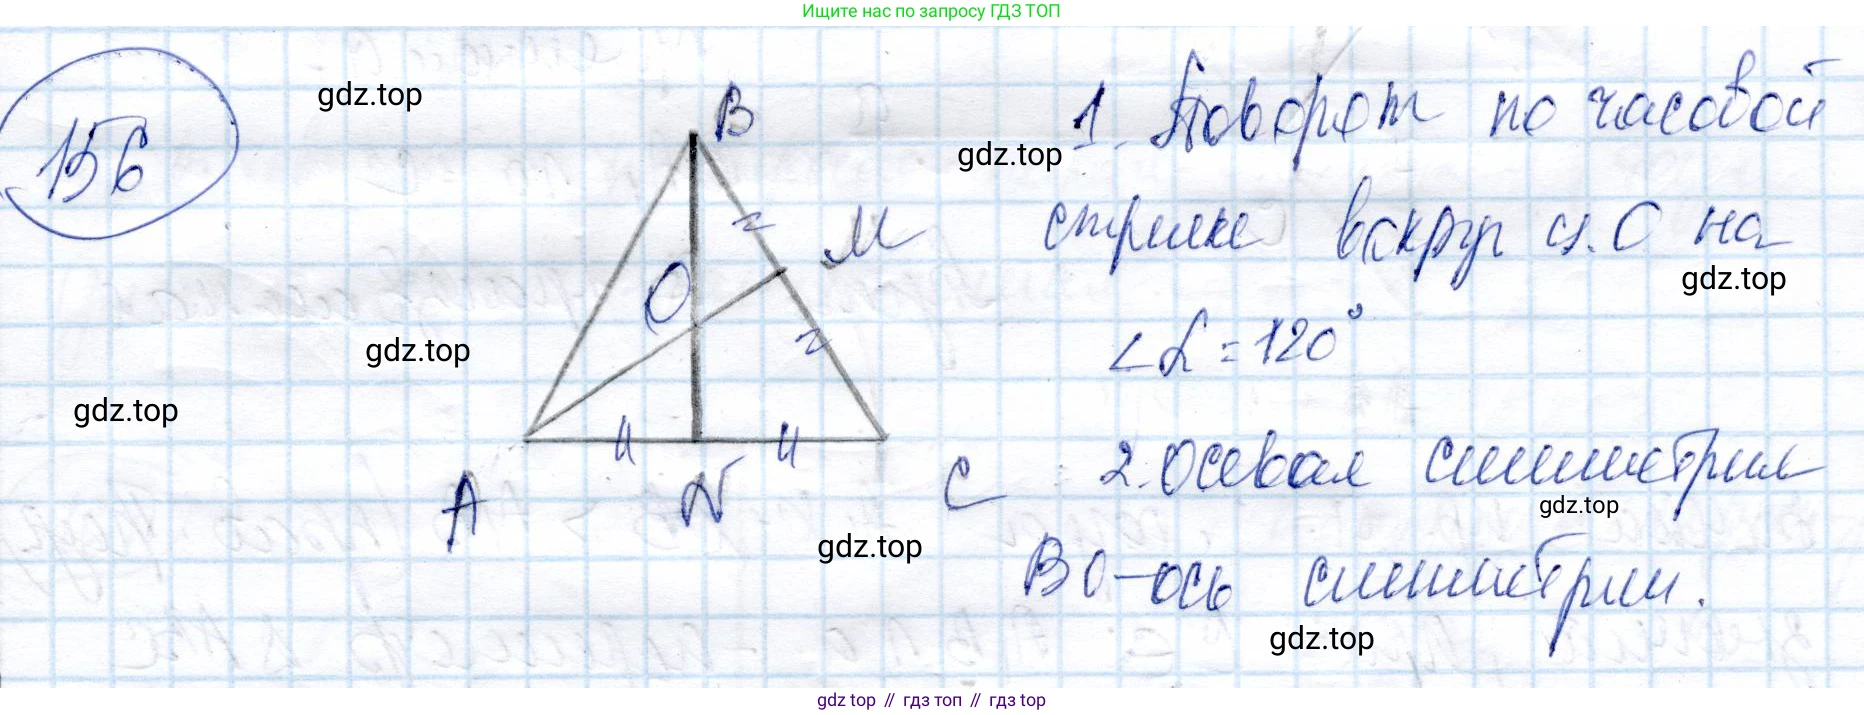 Ищите нас по запросу ГДЗ ТОП
156
gdz.top
B
1. Поворот по часовой
gdz.top
стрелке вокруг ц. О на
M
gdz.top
O
∠α = 120°
gdz.top
gdz.top
A
N
C
2. Осевая симметрия
gdz.top
gdz.top
BO – ось симметрии.
gdz.top
gdz top // гдз топ // гдз top